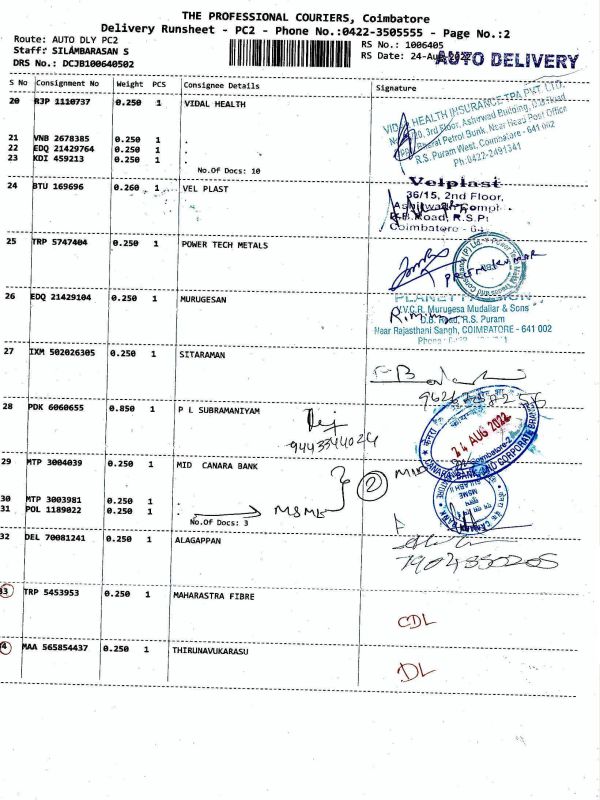 THE PROFESSIONAL COURIERS, Coimbatore
Delivery Runsheet - PC2 - Phone No.:0422-3505555 - Page No.:2
Route: AUTO DLY PC2
Staff: SILAMBARASAN S
DRS No.: DCJB100640502
RS No.: 1006405
RS Date: 24-Aug-2022
AUTO DELIVERY
S No Consignment No Weight PCS Consignee Details Signature
20 RJP 1110737 0.250 1 VIDAL HEALTH
VIDAL HEALTH INSURANCE TPA PVT. LTD.
3rd Floor, Ashirwad Building, D.B. Road
Petrol Bunk, Near Head Post Office
R.S. Puram West, Coimbatore - 641 002
Ph:0422-2491341
21 VNB 2678385 0.250 1 .
22 EDQ 21429764 0.250 1 .
23 KDI 459213 0.250 1 .
No.Of Docs: 10
24 BTU 169696 0.260 1 VEL PLAST
Velplast
36/15, 2nd Floor,
D.B.Road, R.S.P
Coimbatore - 64
25 TRP 5747404 0.250 1 POWER TECH METALS
26 EDQ 21429104 0.250 1 MURUGESAN
V.C.R. Murugesa Mudaliar & Sons
D.B. Road, R.S. Puram
Near Rajasthani Sangh, COIMBATORE - 641 002
27 IXM 502026305 0.250 1 SITARAMAN
28 PDK 6060655 0.850 1 P L SUBRAMANIYAM
9443344024
24 AUG 2022
CANARA BANK
29 MTP 3004039 0.250 1 MID CANARA BANK
2
30 MTP 3003981 0.250 1 .
31 POL 1189022 0.250 1 .
MSME
No.Of Docs: 3
32 DEL 70081241 0.250 1 ALAGAPPAN
7904350205
33 TRP 5453953 0.250 1 MAHARASTRA FIBRE
CDL
4 MAA 565854437 0.250 1 THIRUNAVUKARASU
DL